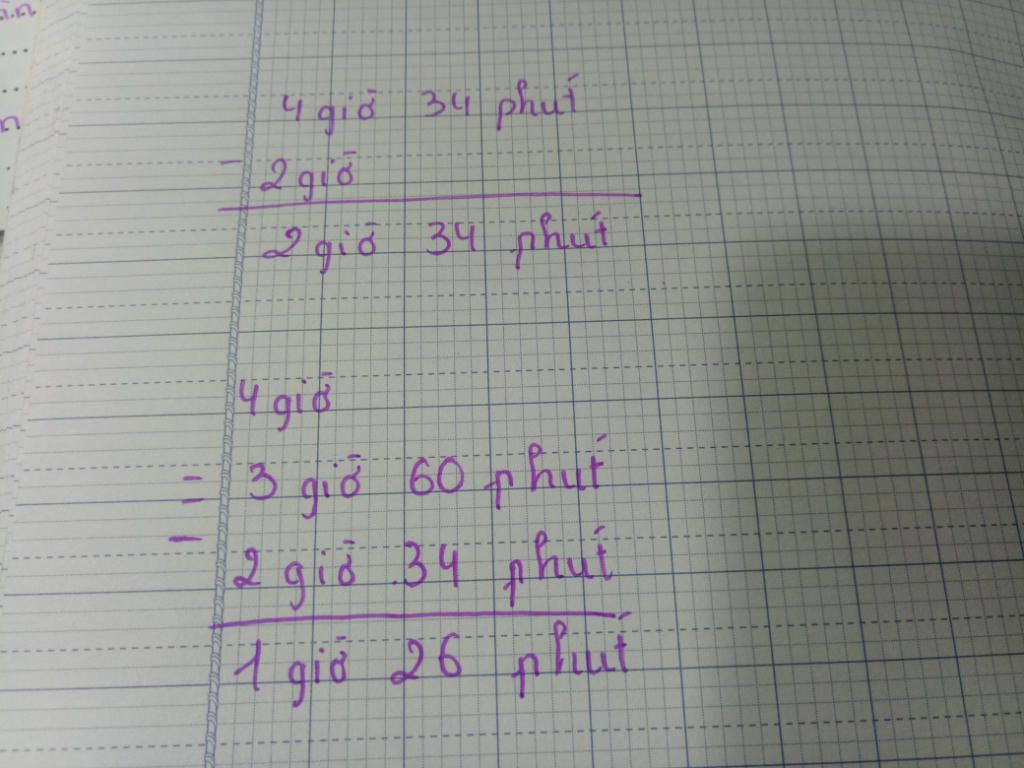 4 giờ 34 phút
- 2 giờ
2 giờ 34 phút
4 giờ
= 3 giờ 60 phút
-
2 giờ 34 phút
1 giờ 26 phút